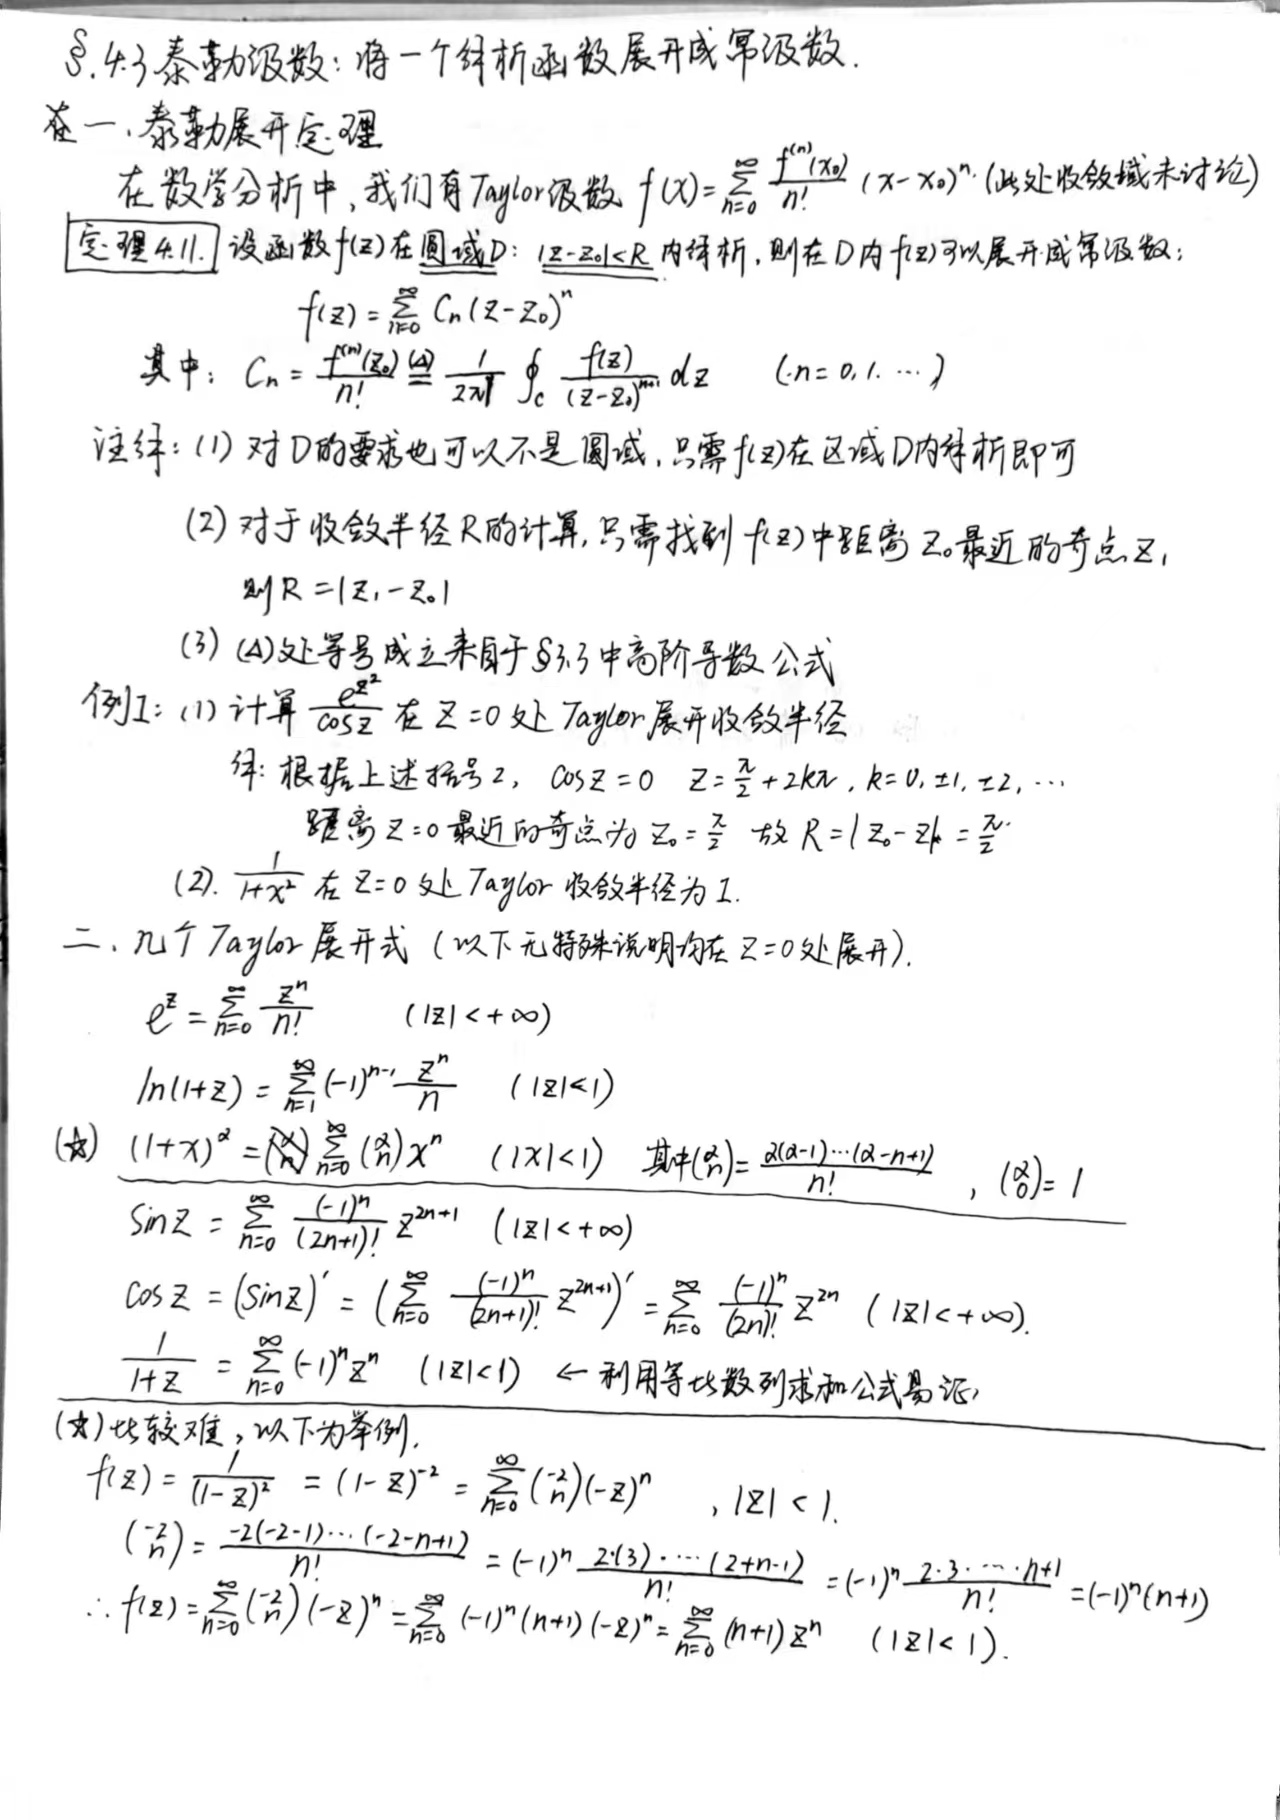 §.4.3 泰勒级数：将一个解析函数展开成幂级数.
一、泰勒展开定理
在数学分析中，我们有Taylor级数 f(x)=∑_{n=0}^{∞} f^{(n)}(x₀)/n! (x-x₀)^n. (此处收敛域未讨论)
定理4.11. 设函数f(z)在圆域D: |z-z₀|<R 内解析，则在D内f(z)可以展开成幂级数：
f(z)=∑_{n=0}^{∞} Cₙ(z-z₀)^n
其中：Cₙ = f^{(n)}(z₀)/n! (Δ)= 1/2πi ∮_c f(z)/(z-z₀)^{n+1} dz (n=0,1.…)
注解：(1) 对D的要求也可以不是圆域，只需f(z)在区域D内解析即可
(2) 对于收敛半径R的计算，只需找到f(z)中距离z₀最近的奇点z₁
则R=|z₁-z₀|
(3) (Δ)处等号成立来自于§3.3中高阶导数公式
例1：(1) 计算 e^{z²}/cosz 在z=0处Taylor展开收敛半径
解：根据上述括号2， cosz=0 z=π/2+2kπ, k=0,±1,±2,…
距离z=0最近的奇点为z₀=π/2 故R=|z₀-z|=π/2
(2). 1/(1+x²) 在z=0处Taylor收敛半径为1.
二、几个Taylor展开式（以下无特殊说明均在z=0处展开）.
e^z=∑_{n=0}^{∞} z^n/n! (|z|<+∞)
ln(1+z)=∑_{n=1}^{∞} (-1)^{n-1} z^n/n (|z|<1)
(☆) (1+x)^α=∑_{n=0}^{∞} (α n) x^n (|x|<1) 其中(α n)=α(α-1)…(α-n+1)/n! , (α 0)=1
sinz=∑_{n=0}^{∞} (-1)^n/(2n+1)! z^{2n+1} (|z|<+∞)
cosz=(sinz)'=(∑_{n=0}^{∞} (-1)^n/(2n+1)! z^{2n+1})'=∑_{n=0}^{∞} (-1)^n/(2n)! z^{2n} (|z|<+∞).
1/(1+z)=∑_{n=0}^{∞} (-1)^n z^n (|z|<1) ←利用等比数列求和公式易证
(☆)比较难，以下为举例.
f(z)=1/(1-z)²=(1-z)^{-2}=∑_{n=0}^{∞} (-2 n)(-z)^n , |z|<1.
(-2 n)=-2(-2-1)…(-2-n+1)/n!=(-1)^n 2·(3)·…(2+n-1)/n!=(-1)^n 2·3·…·n+1/n!=(-1)^n(n+1)
∴ f(z)=∑_{n=0}^{∞} (-2 n)(-z)^n=∑_{n=0}^{∞} (-1)^n(n+1)(-z)^n=∑_{n=0}^{∞} (n+1)z^n (|z|<1).